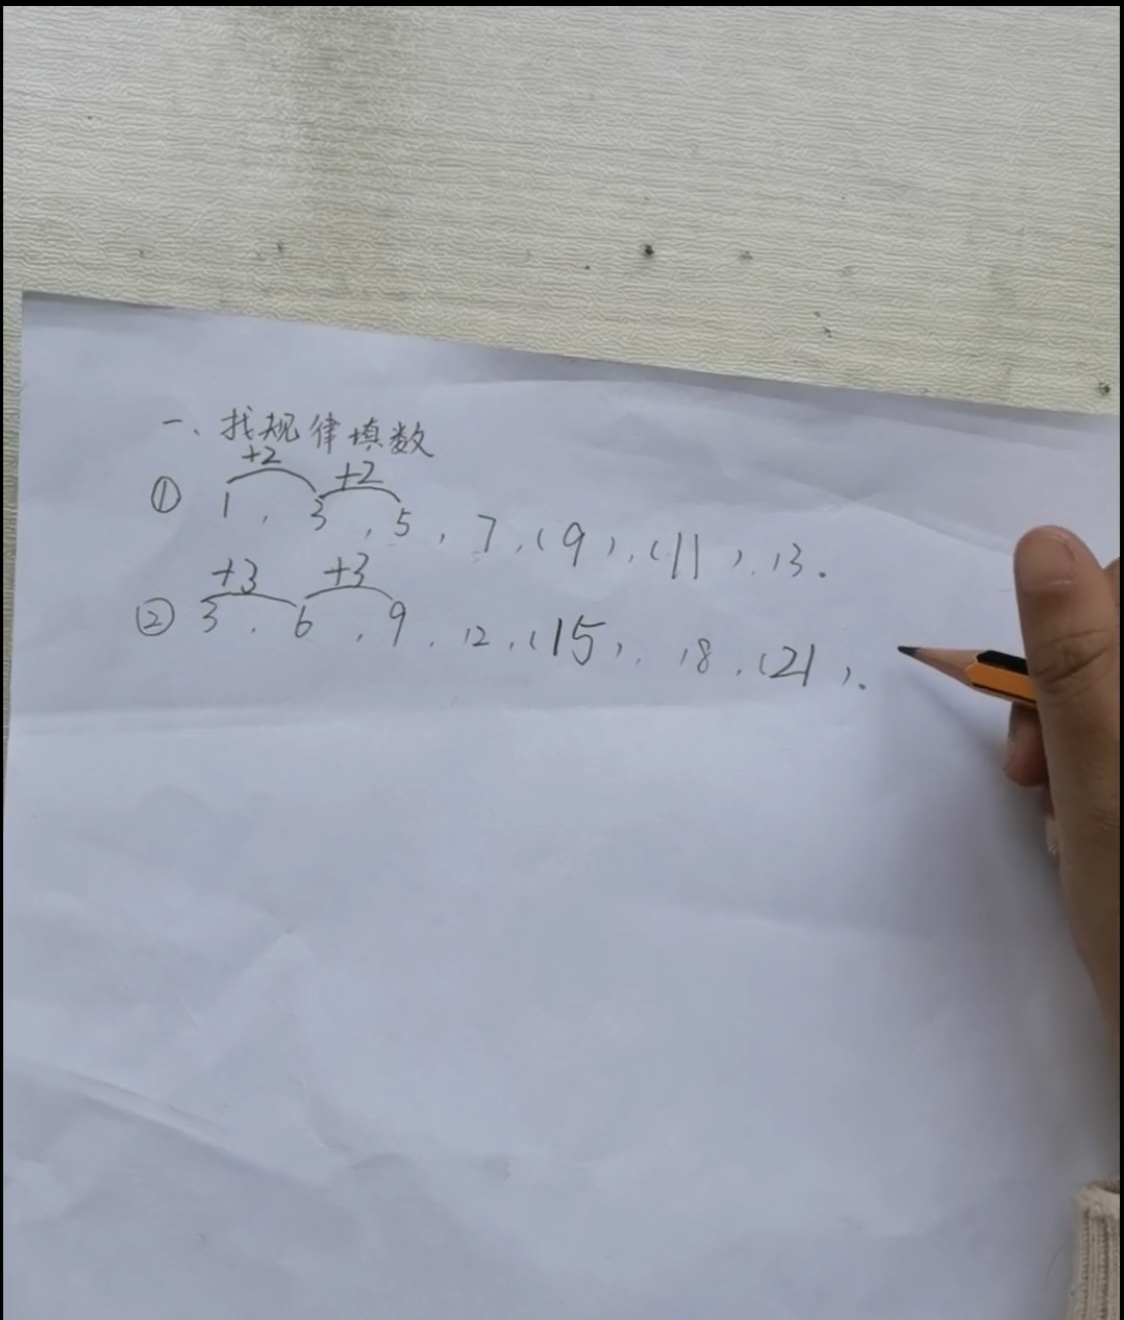 一、找规律填数
+2 +2
① 1, 3, 5, 7, (9), (11), 13.
+3 +3
② 3, 6, 9, 12, (15), 18, (21).